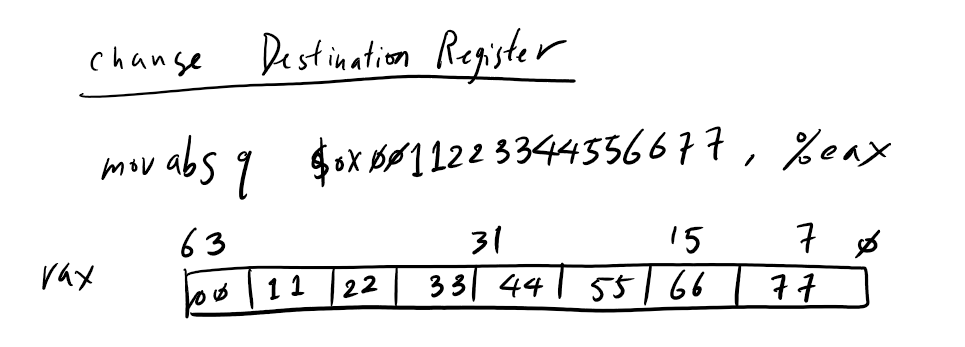 change Destination Register
movabsq $0x0011223344556677, %eax
63 31 15 7 0
rax 00 11 22 33 44 55 66 77